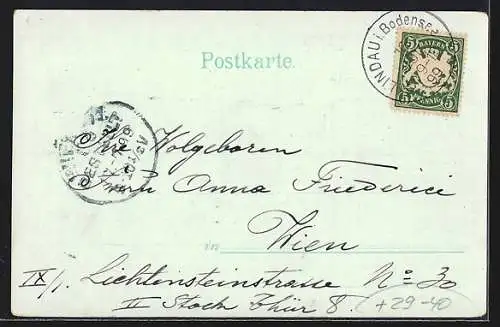 Postkarte.
LINDAU i. Bodensee
5 BAYERN 5
5 PFENNIG 5
Ihre Wolgeboren
Anna Friederici
in Wien
IX/1. Lichtensteinstrasse No 30
II Stock Thür 8. (+29-40